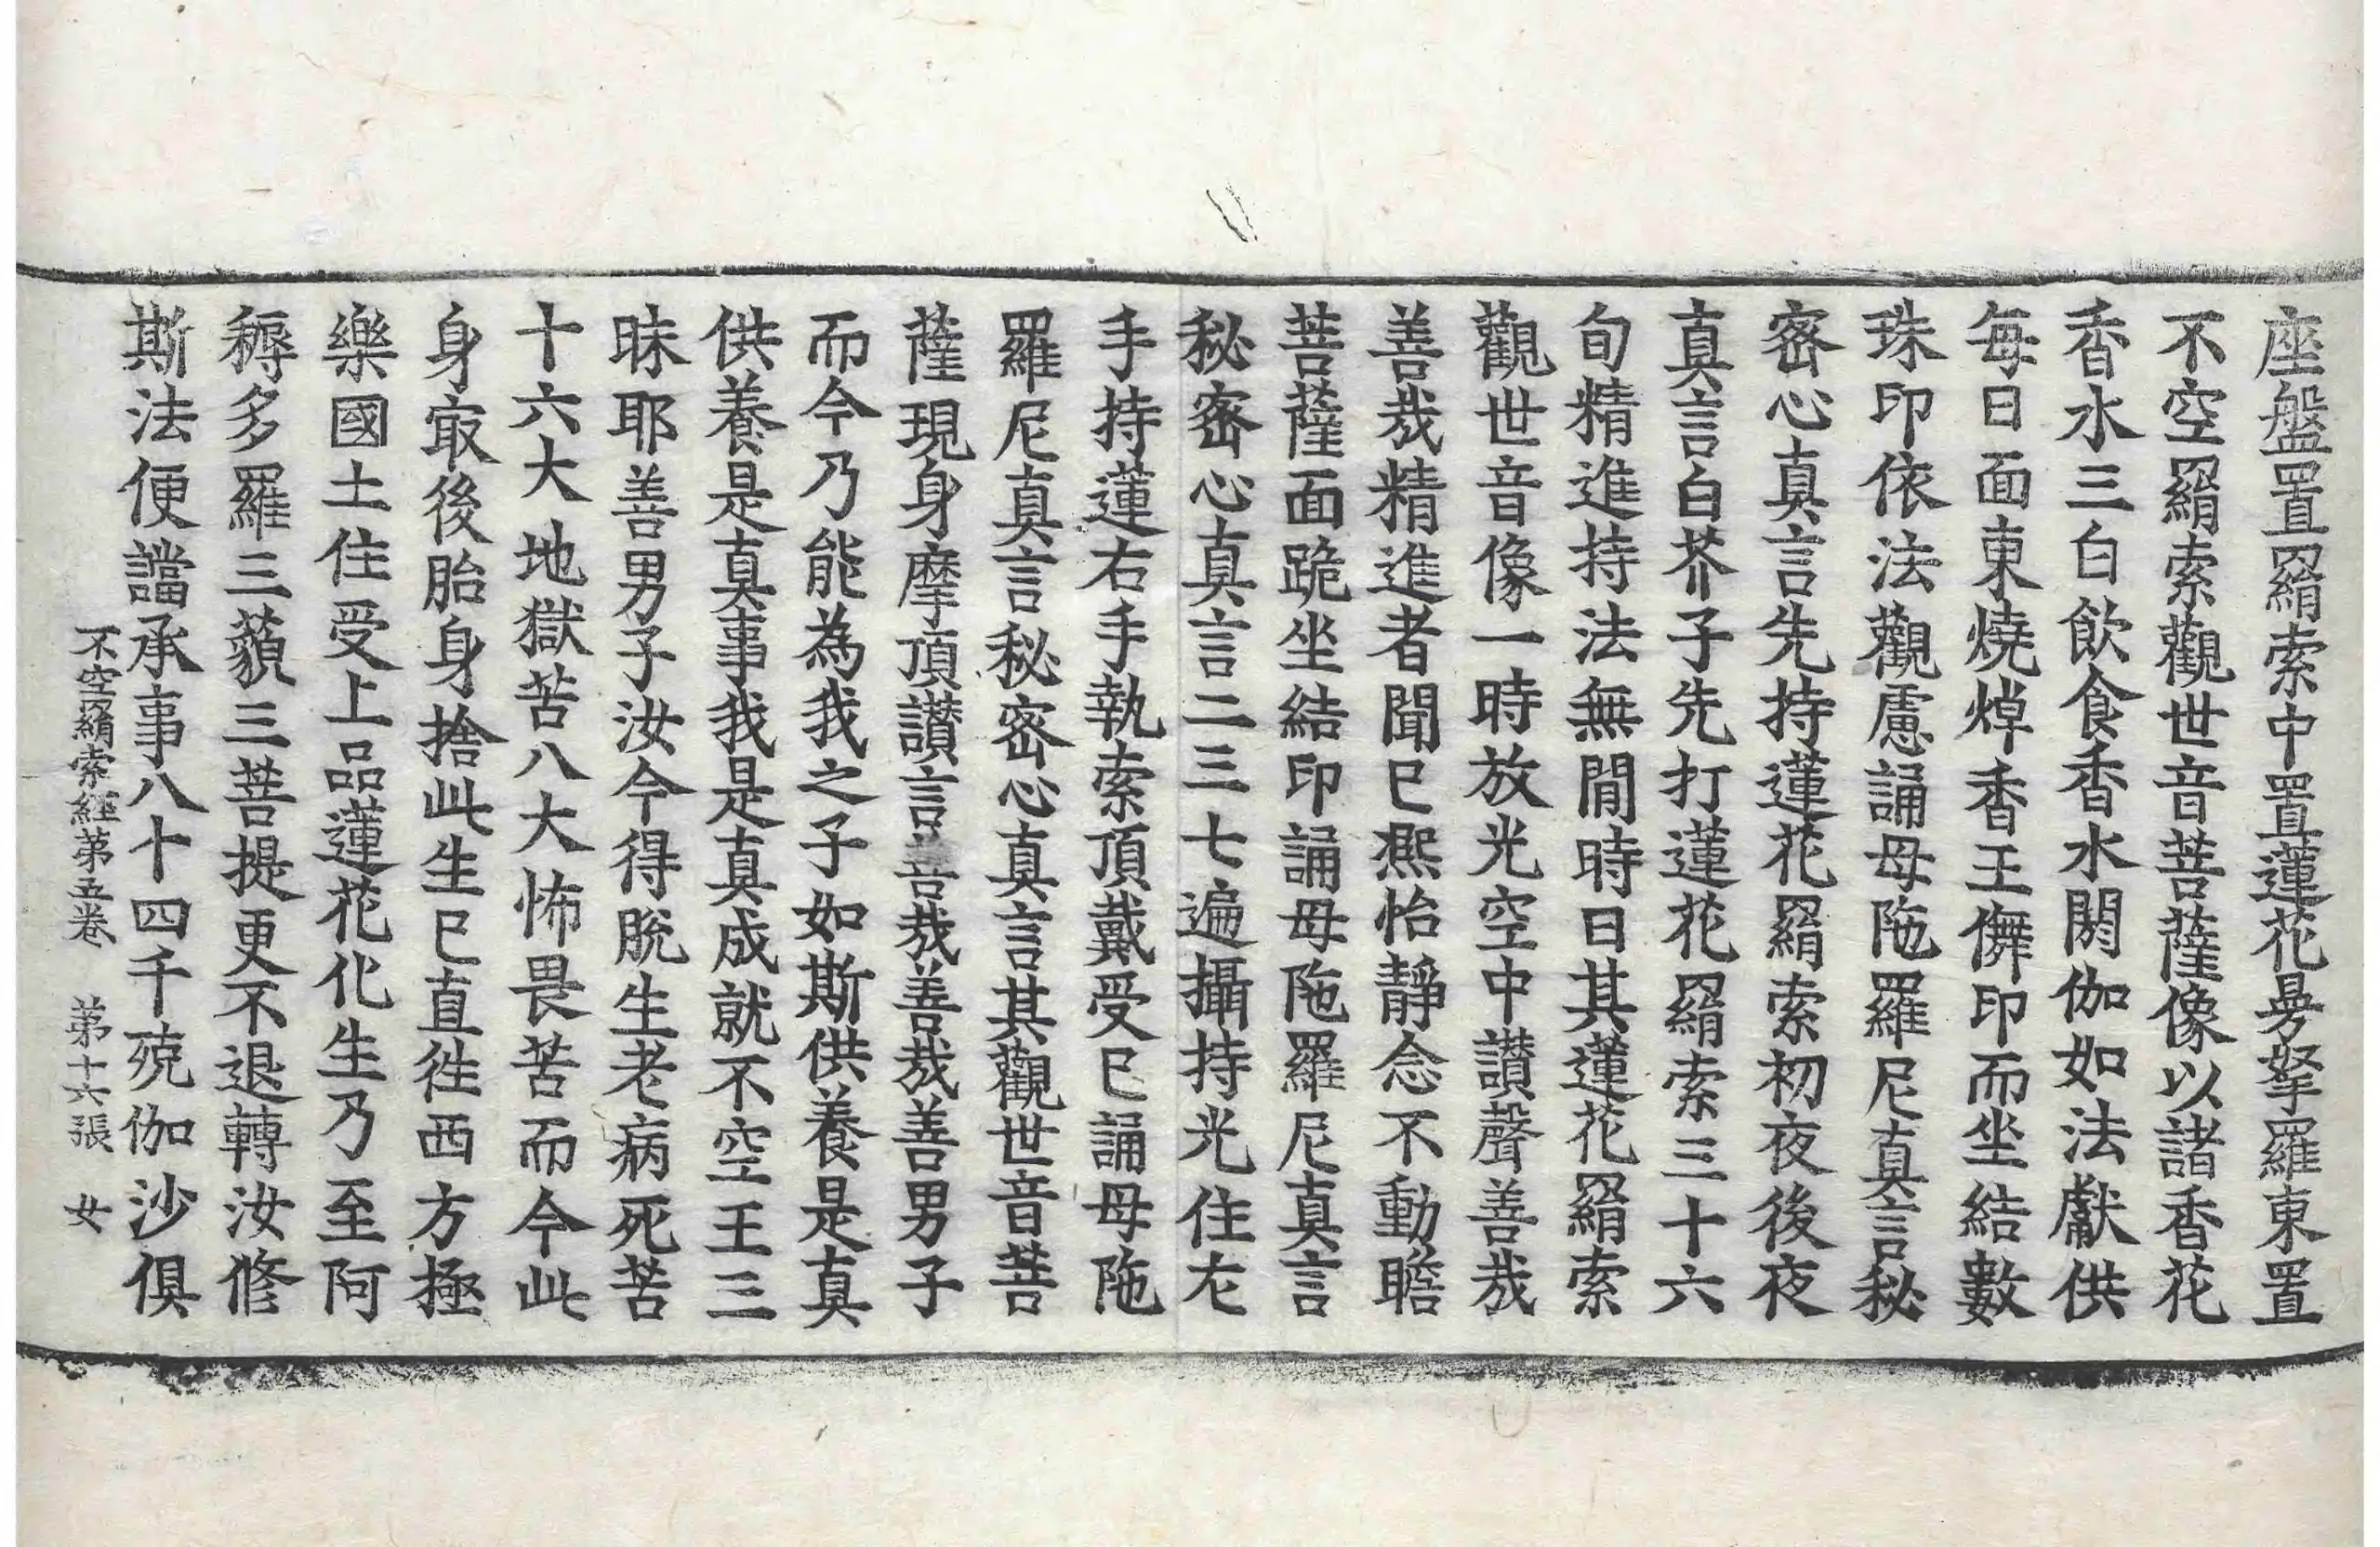 座盤置羂索中置蓮花曼拏羅東置
不空羂索觀世音菩薩像以諸香花
香水三白飲食香水閼伽如法獻供
每日面東燒焯香王儛印而坐結數
珠印依法觀慮誦母陁羅尼真言秘
密心真言先持蓮花羂索初夜後夜
真言白芥子先打蓮花羂索三十六
旬精進持法無閒時日其蓮花羂索
觀世音像一時放光空中讃聲善哉
善哉精進者聞已熈怡靜念不動瞻
菩薩面跪坐結印誦母陁羅尼真言
秘密心真言二三七遍攝持光住左
手持蓮右手執索頂戴受已誦母陁
羅尼真言秘密心真言其觀世音菩
薩現身摩頂讃言善哉善哉善男子
而今乃能為我之子如斯供養是真
供養是真事我是真成就不空王三
昧耶善男子汝今得脫生老病死苦
十六大地獄苦八大怖畏苦而今此
身㝡後胎身捨此生已直往西方極
樂國土住受上品蓮花化生乃至阿
耨多羅三藐三菩提更不退轉汝脩
斯法便譡承事八十四千殑伽沙俱
不空羂索經第五卷 第十六張 女